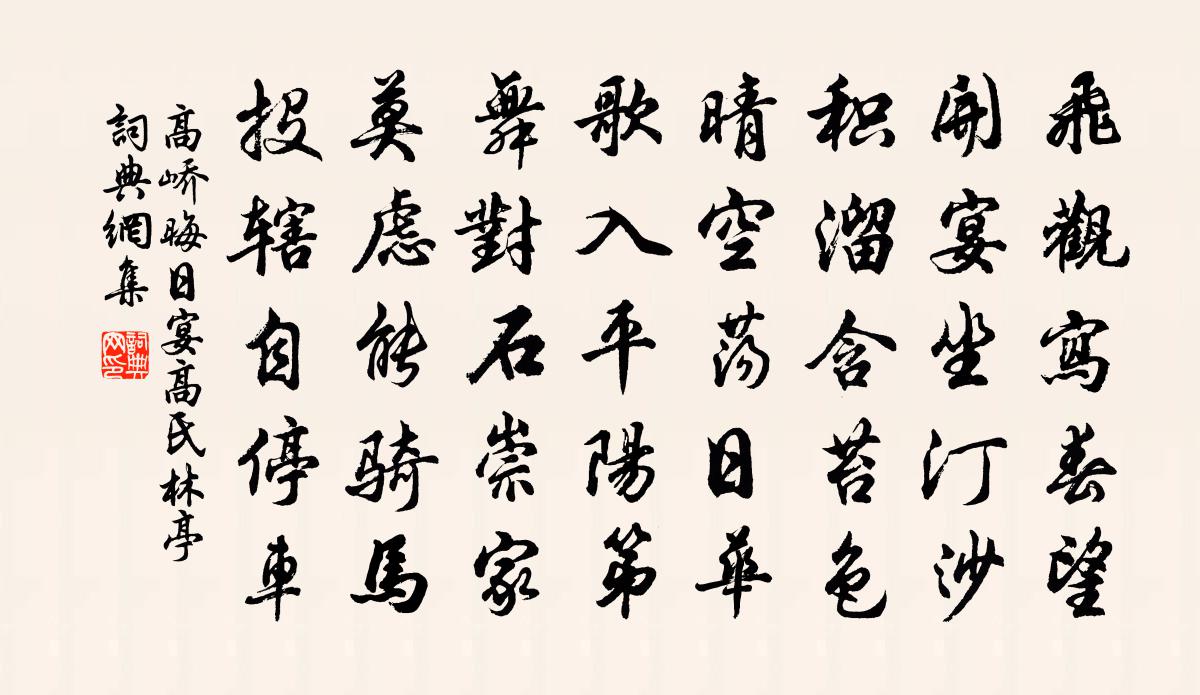 飛觀寫春望
開宴坐汀沙
积溜含苔色
晴空蕩日華
歌入平陽第
舞對石崇家
莫慮能騎馬
投辖自停車
高嶠晦日宴高氏林亭
詞典網集
詞典网印